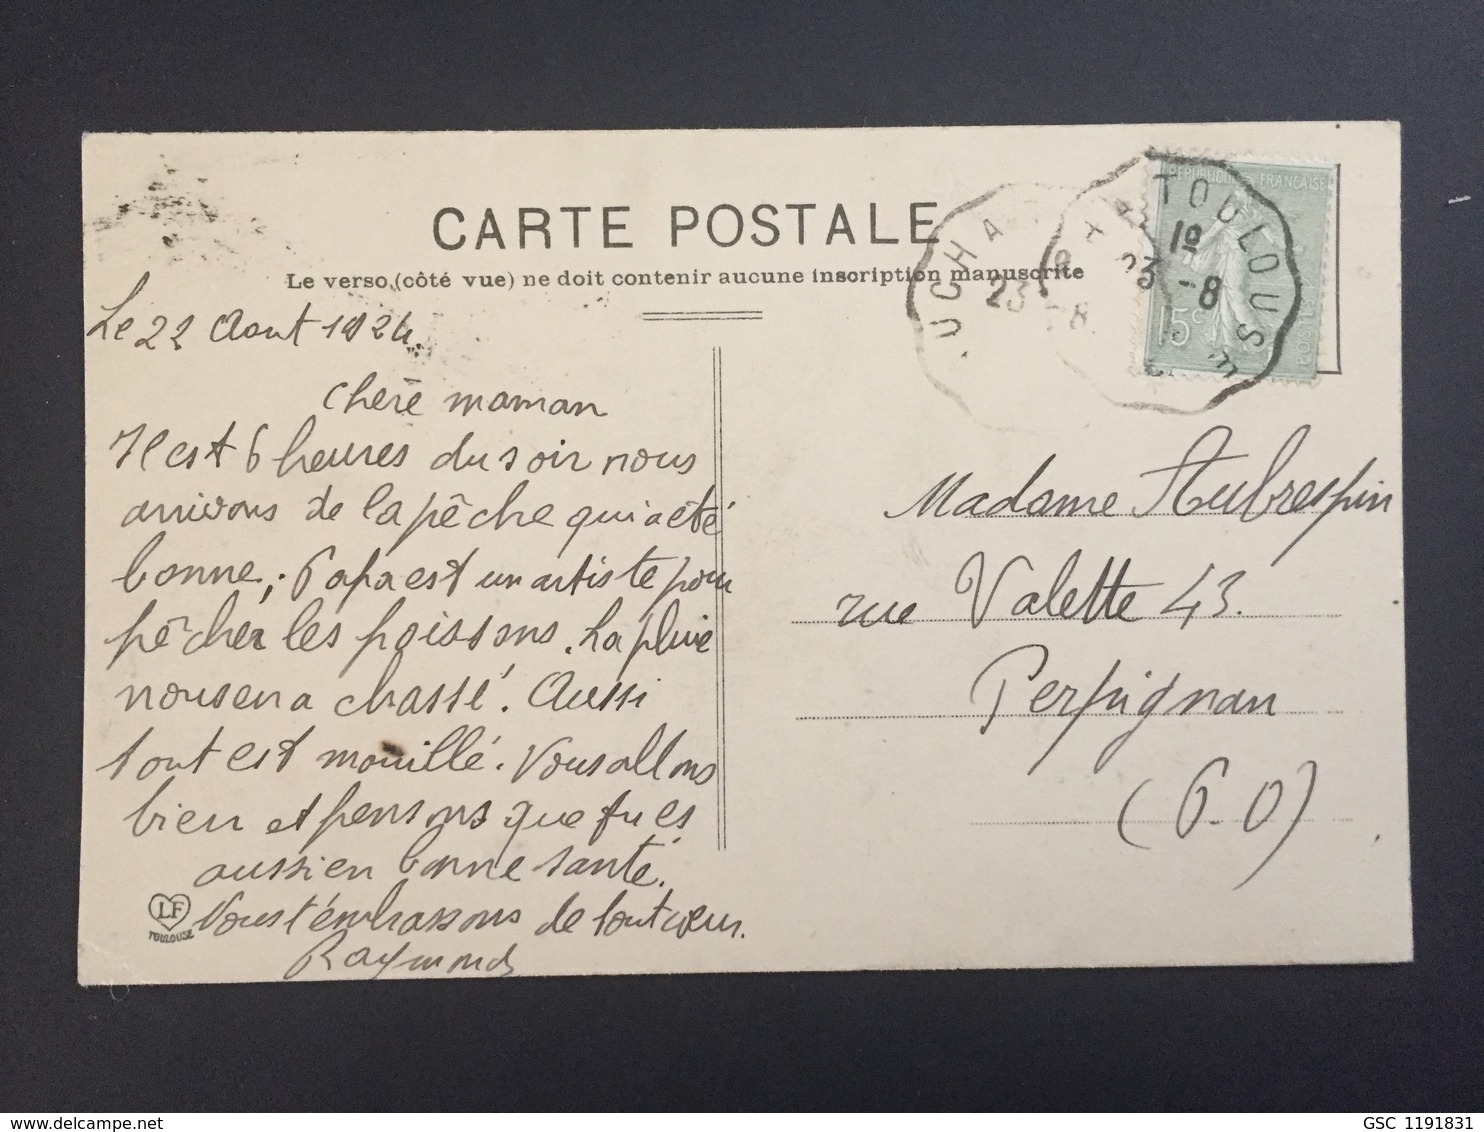 CARTE POSTALE
Le verso (côté vue) ne doit contenir aucune inscription manuscrite
REPUBLIQUE FRANÇAISE
15c
POSTES
TOULOUSE
23 -8
UCHA
23 -8
Le 22 Aout 1924.
Chère maman
Il est 6 heures du soir nous
arrivons de la pêche qui a été
bonne; Papa est un artiste pour
pêcher les poissons. La pluie
nous en a chassé. Aussi
tout est mouillé. Nous allons
bien et pensons que tu es
aussi en bonne santé.
Nous t'embrassons de tout cœur.
Raymond
LF
TOULOUSE
Madame Aubrespin
rue Valette 43.
Perpignan
(P.O)
delcampe.net
GSC 1191831